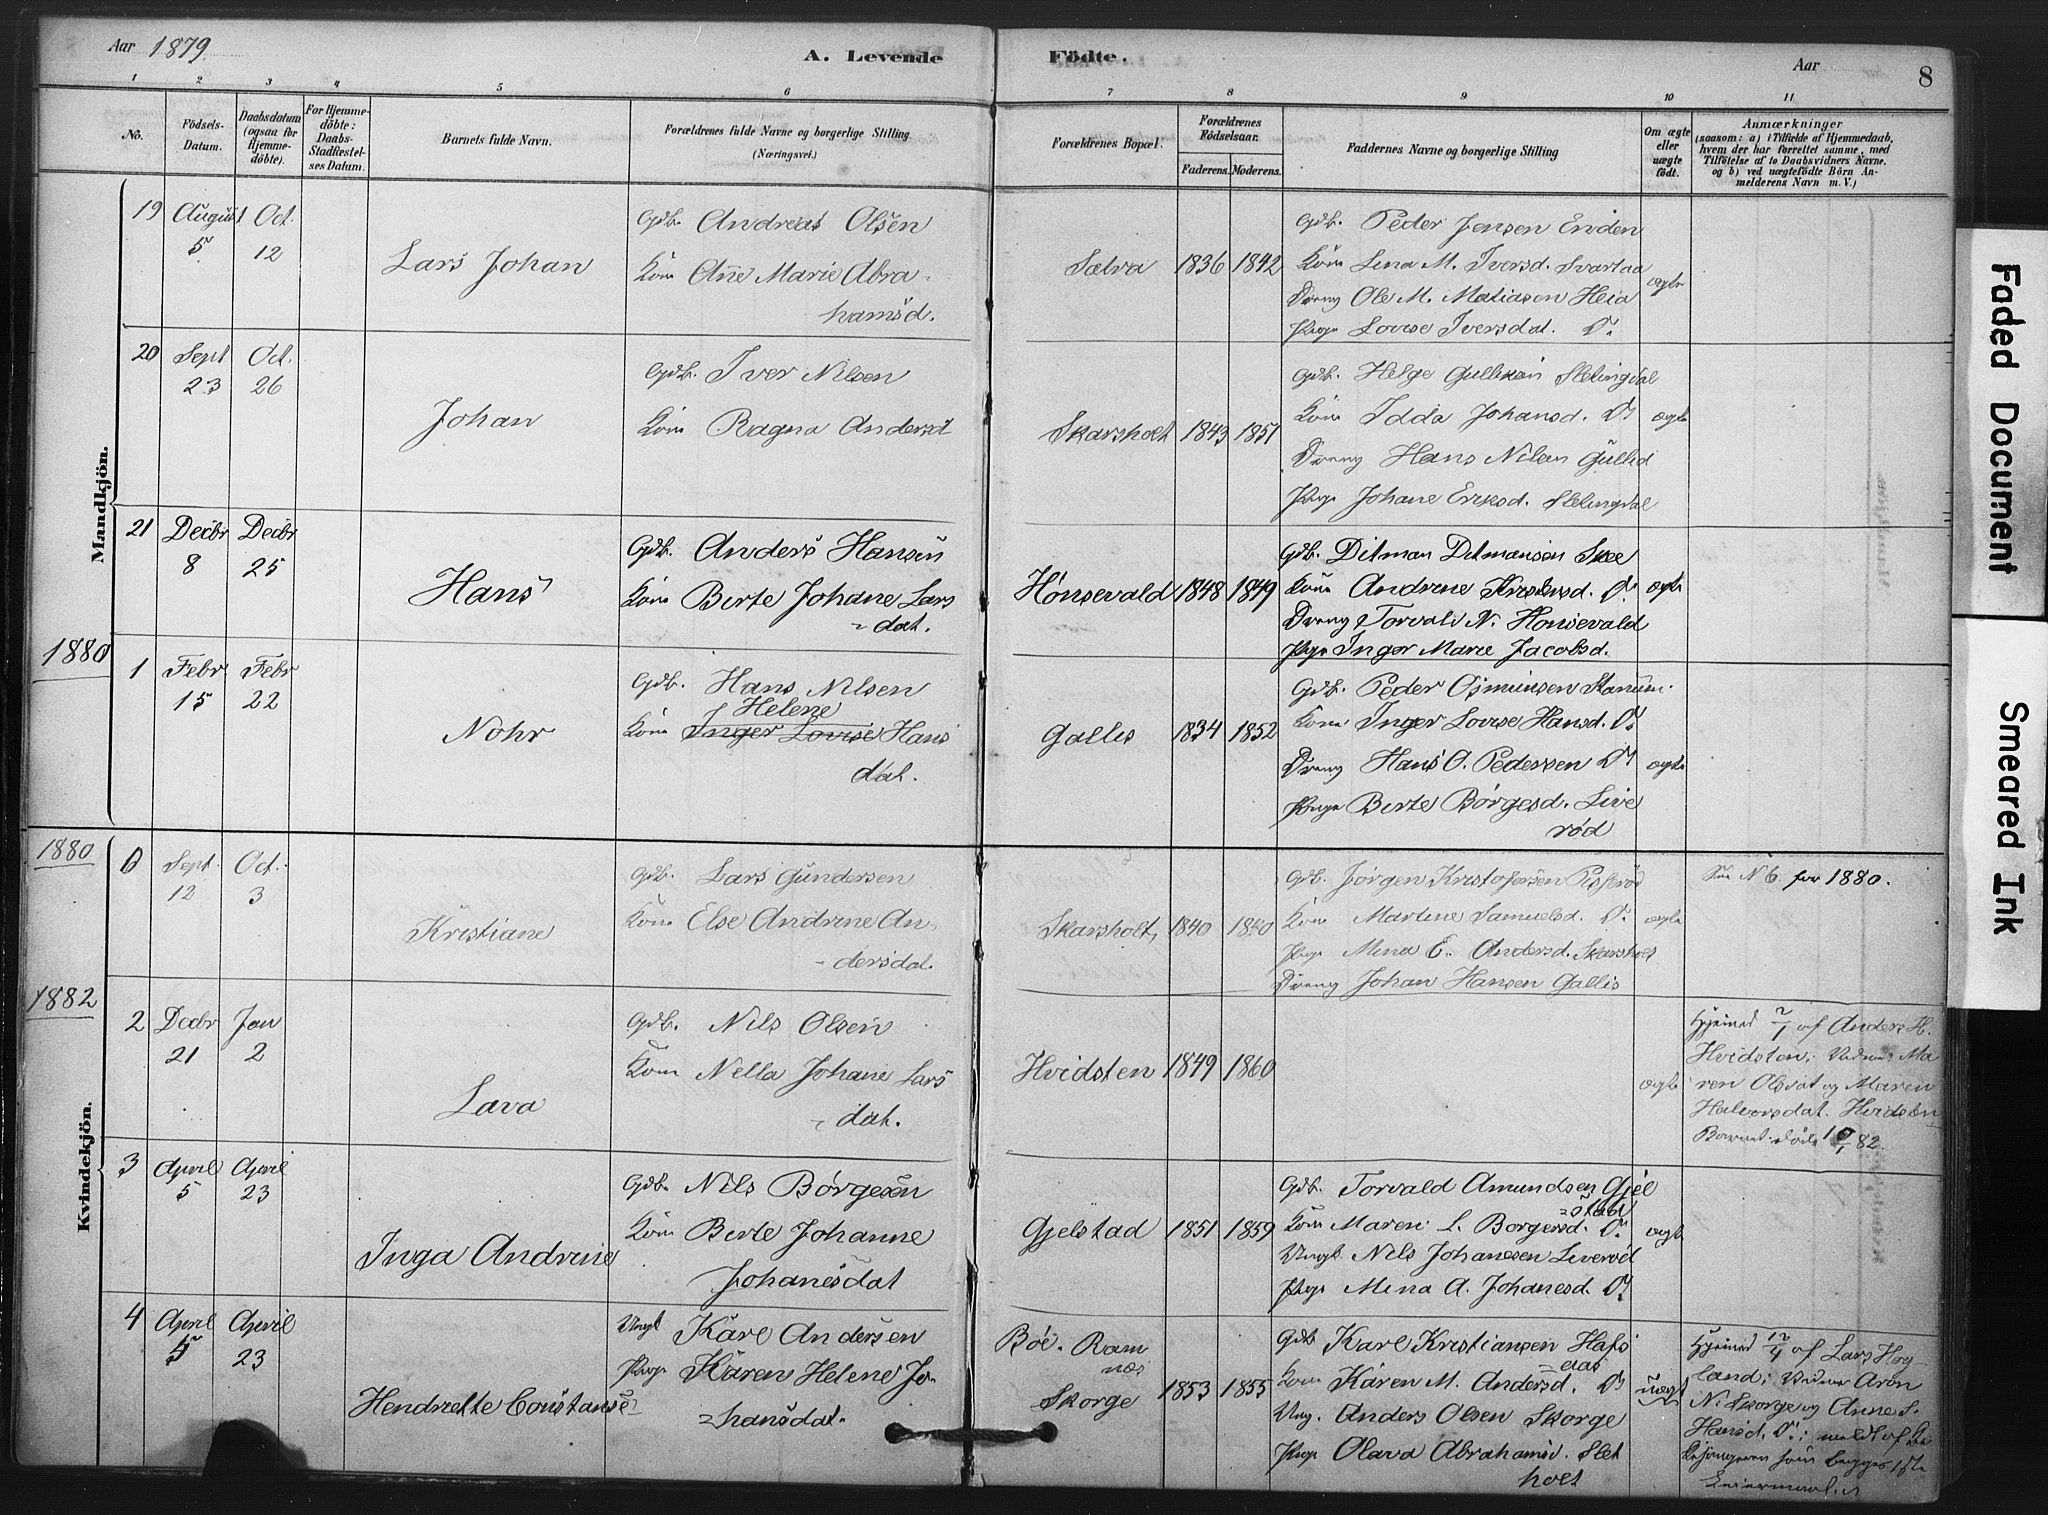 Aar 1879.
A. Levende Födte.
Aar
8
1 2 3 4 5 6 7 8 9 10 11
No.
Födsels-Datum.
Daabsdatum (ogsaa for Hjemmedöbte).
For Hjemmedöbte: Daabs-Stadfestelses Datum.
Barnets fulde Navn.
Forældrenes fulde Navne og borgerlige Stilling
(Næringsvei.)
Forældrenes Bopæl.
Forældrenes Födselsaar.
Faderens. Moderens.
Faddernes Navne og borgerlige Stilling
Om ægte eller uægte födt.
Anmærkninger
(saasom: a) i Tilfælde af Hjemmedaab, hvem der har forrettet samme, med Tilföielse af to Daabsvidners Navne. og b) ved uægtefödte Börn Anmelderens Navn m. V.)
Mandkjön.
19 August 5 Oct. 12
Lars Johan
Gdb. Andreas Olsen
Kone Anne Marie Abra-
hamsd.
Sælva 1836 1842
Gdb. Peder Jensen Enden
Kone Lena M. Iversd. Svartaa
Dreng Ole M. Matiasen Heia
Pige Lovise Iversdat. Do
ægte
20 Sept 23 Oct. 26
Johan
Gdb. Iver Nilsen
Kone Ragna Andersd
Skarsholt 1843 1851
Gdb. Helge Gulliksen Slelingdal
Kone Idda Johansd. Do
Dreng Hans Nilsen Gullid
Pige Johane Eriksd. Slelingdal
ægte
21 Decbr 8 Decbr 25
Hans
Gdb. Anders Hansen
Kone Birte Johane Lars
dat.
Hönsevald 1848 1849
Gdb. Ditman Ditmansen Skee
Kone Andrine Kristensd. Do
Dreng Torvald N. Honsevald
Pige Inger Marie Jacobsd.
ægte
1880
1 Febr 15 Febr 22
Nohr
Gdb. Hans Nilsen
Helene
Kone Inger Lovise Hans
dat.
Gallis 1834 1852
Gdb. Peder Osmunsen Stanum.
Kone Inger Lovise Hansd. Do
Dreng Hans O. Pedersen Do
Pige Berte Börgesd. Live
röd
ægte
Kvindekjön.
1880
0 Sept. 12 Oct. 3
Kristiane
Gdb. Lars Gundersen
Kone Else Andrine An-
dersdat.
Skarsholt, 1840 1840
Gdb. Jörgen Kristofersen
Kone Martine Samuelsd. Do
Pige Mina E. Andersd. Skarsholt
Dreng Johan Hansen Gallis
ægte
Se N 6 for 1880.
1882
2 Decbr 21 Jan 2
Lava
Gdb. Nils Olsen
Kone Nella Johane Lars
dat.
Hvidsten 1849 1860
ægte
Hjemmed 2/1 af Anders H.
Hvidsten; Vidner: Ma
ren Olsdat og Maren
Halvorsdat. Hvidsten
Barnet döde 82.
3 April 5 April 23
Inga Andrine
Gdb. Nils Börgesen
Kone Birte Johanne
Johanesdat
Gjelstad 1851 1859
Gdb. Torvald Amundsen Gjel
stad
Kone Maren L. Borgersd. Do
Ungk. Nils Johanesen Liveröd
Pige Mina A. Johanesd. Do
ægte
4 April 5 April 23
Hendriette Constanse
Ungk Karl Andersen
Pige Karen Helene Jo-
hansdat.
Böe. Ram
næs
Skorge 1853 1855
Gdb Karl Kristiansen Hafs
aas
Kone Karen M. Andersd. Do
Ung. Anders Olsen Skorge
Pige Olava Abrahamsd. Slet
holt
uægte
Hjemmed 12/4 af Lars Hog-
land; Vidner Aron
N. Skorge og Anne S.
Hansd. Do; meldt af
som begges 1ste
Leiermaal.
Faded Document
Smeared Ink